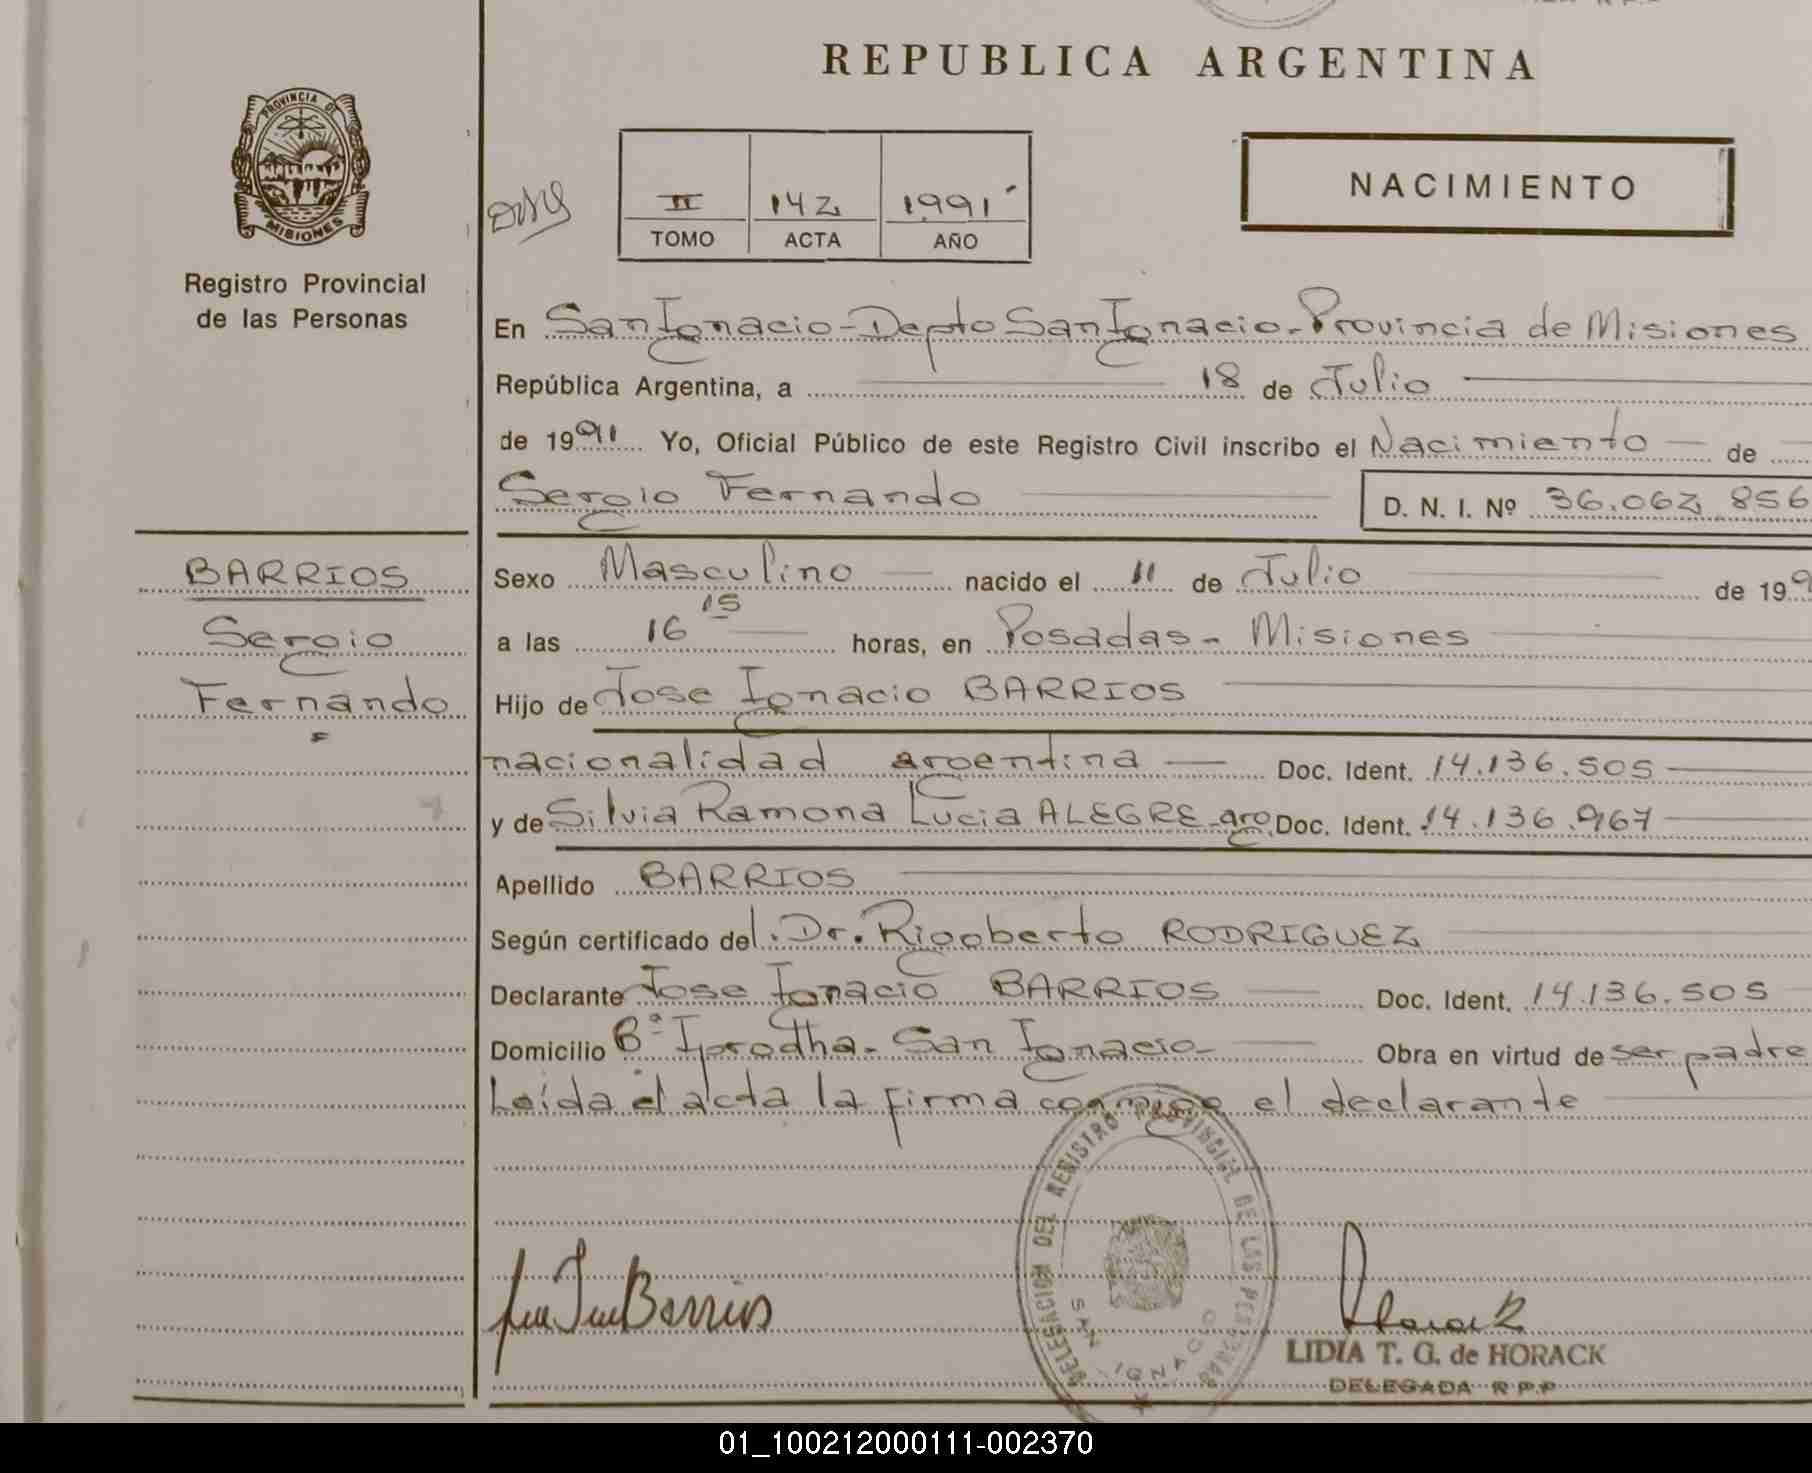 REPUBLICA ARGENTINA
PROVINCIA DE
MISIONES
Registro Provincial
de las Personas
II 142 1991
TOMO ACTA AÑO
NACIMIENTO
En San Ignacio - Depto San Ignacio - Provincia de Misiones
República Argentina, a 18 de Julio
de 1991 Yo, Oficial Público de este Registro Civil inscribo el Nacimiento de
Sergio Fernando D. N. I. Nº 36.062 856
BARRIOS
Sergio
Fernando
Sexo Masculino nacido el 11 de Julio de 199
a las 16 15 horas, en Posadas - Misiones
Hijo de Jose Ignacio BARRIOS
nacionalidad argentina Doc. Ident. 14.136.505
y de Silvia Ramona Lucia ALEGRE arg. Doc. Ident. 14.136.967
Apellido BARRIOS
Según certificado del. Dr. Rigoberto RODRIGUEZ
Declarante Jose Ignacio BARRIOS Doc. Ident. 14.136.505
Domicilio Bº Iprodha - San Ignacio - Obra en virtud de ser padre
Leída el acta la firma conmigo el declarante
DELEGACION DEL REGISTRO PROVINCIAL DE LAS PERSONAS
SAN IGNACIO
Barrios
Horack
LIDIA T. G. de HORACK
DELEGADA R.P.P
01_100212000111-002370